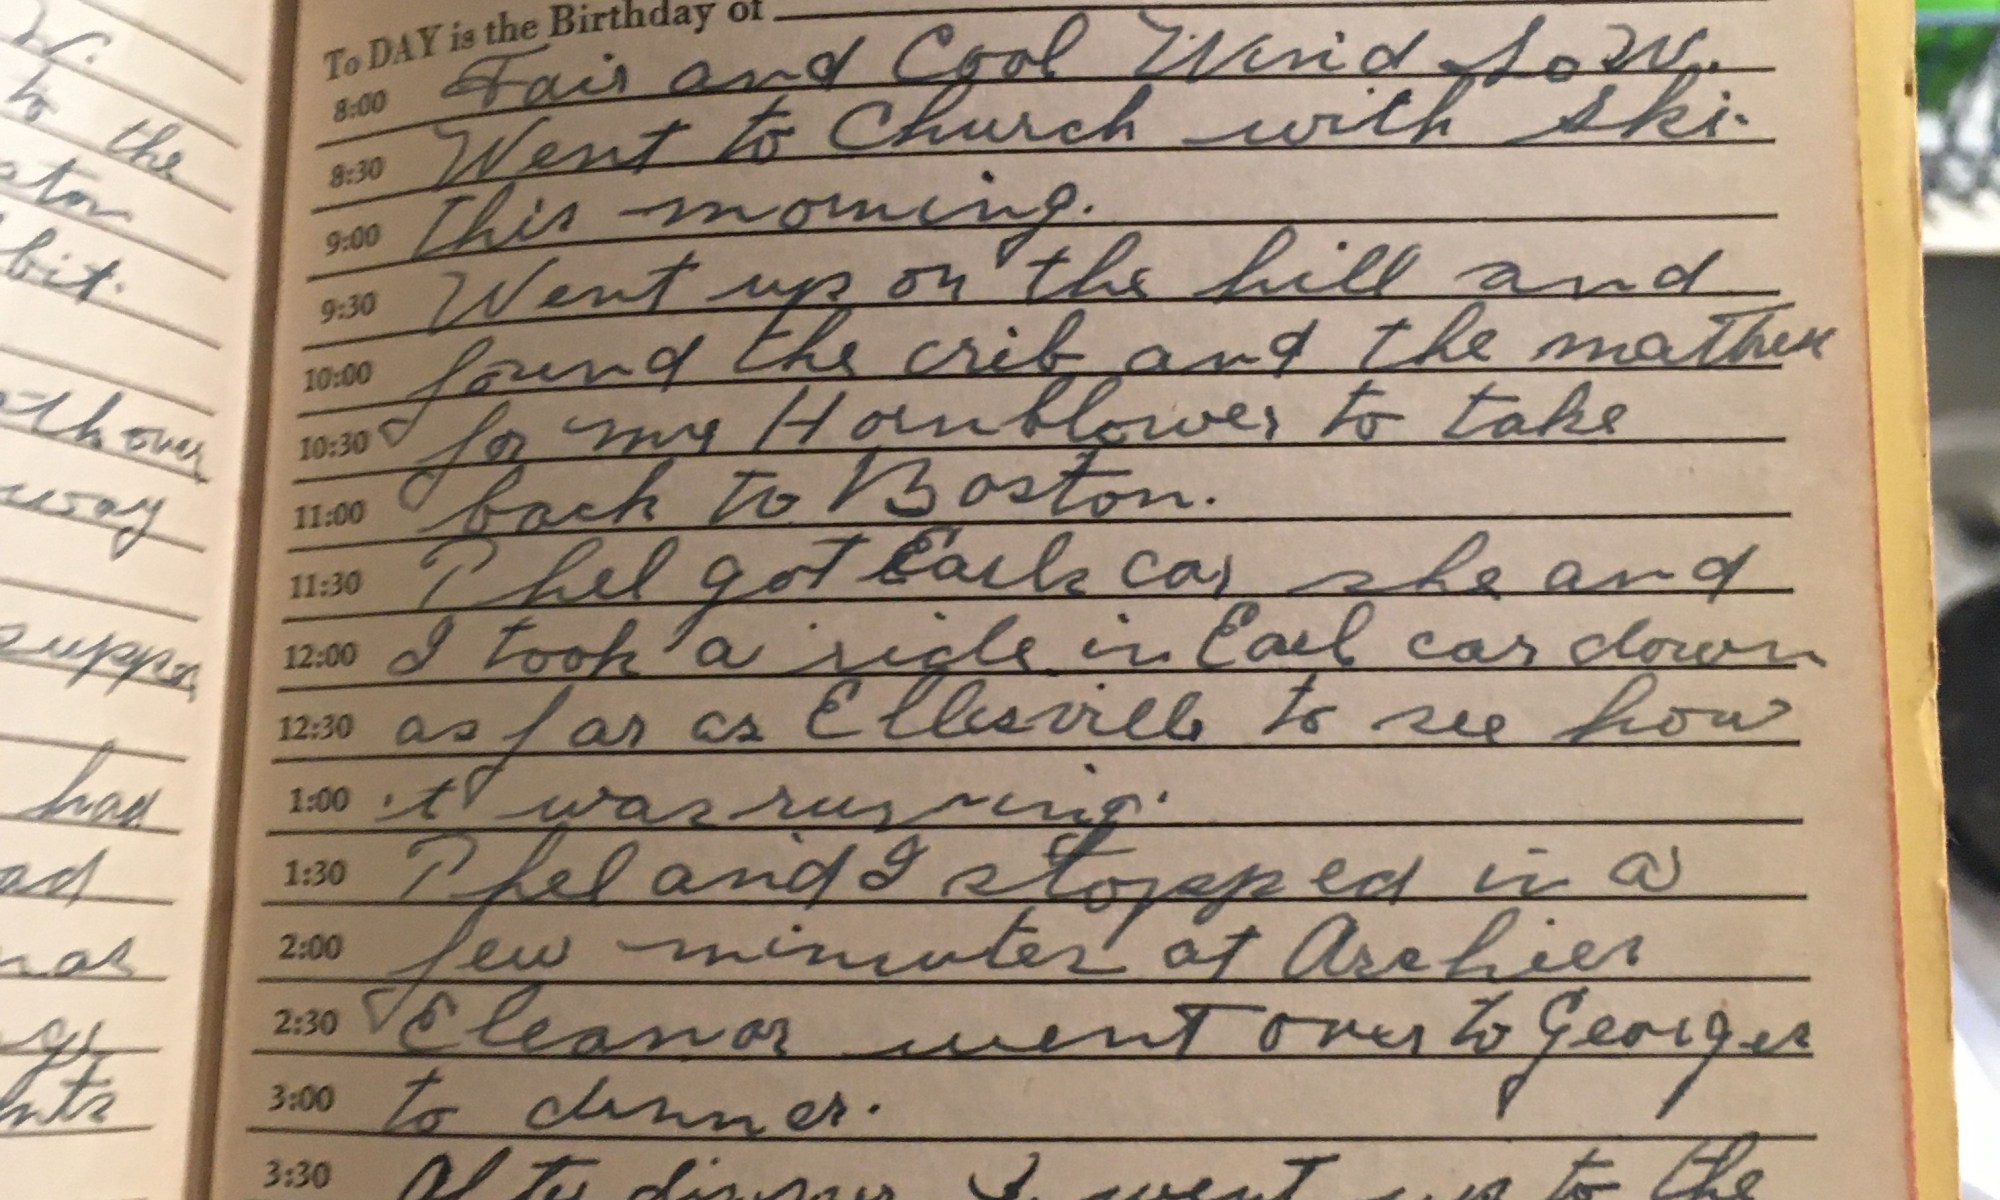 W.
to the
ston
bit.
th over
way
suppe
had
ad
mas
gs
nts
To DAY is the Birthday of
8:00 Fair and Cool Wind So W.
8:30 Went to Church with Ski.
9:00 this morning.
9:30 Went up on the hill and
10:00 found the crib and the
10:30 for Hornblower to take
11:00 back to Boston.
11:30 Phel got Earls car she and
12:00 I took a ride in Earl car down
12:30 as far as Ellisville to see how
1:00 it was running.
1:30 Phel and I stopped in a
2:00 few minutes at Archies
2:30 Eleanor went over to Georges
3:00 to dinner.
3:30 After dinner I went up to the